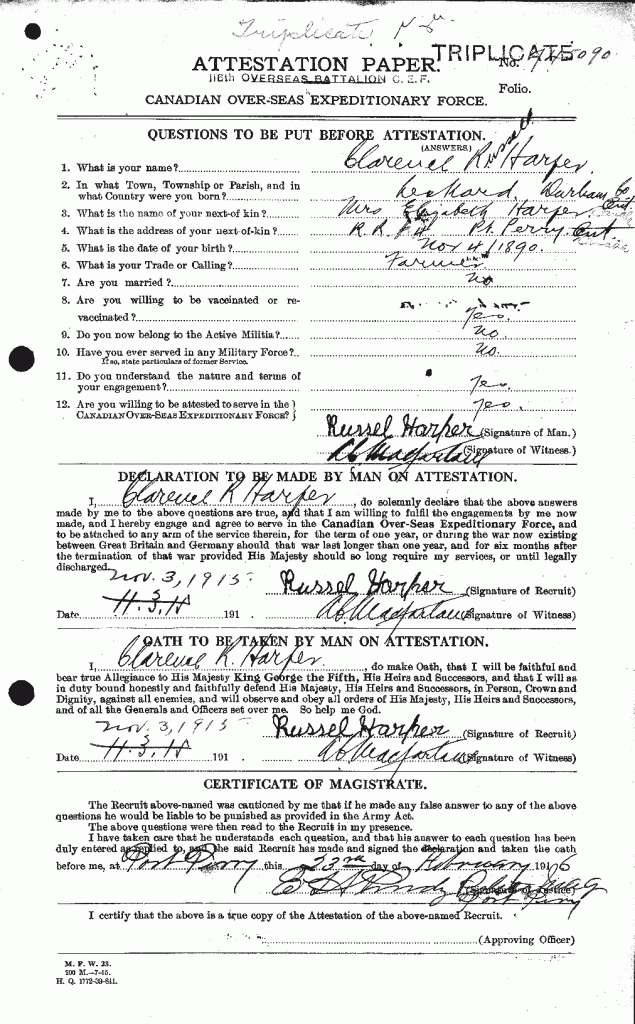 Triplicate
TRIPLICATE
ATTESTATION PAPER. No.
116th OVERSEAS BATTALION C. E. F.
Folio.
CANADIAN OVER-SEAS EXPEDITIONARY FORCE.
QUESTIONS TO BE PUT BEFORE ATTESTATION.
(ANSWERS.)
1. What is your name? Clarence Russell Harper
2. In what Town, Township or Parish, and in what Country were you born? Durham Co Ont
3. What is the name of your next-of kin? Mrs Elizabeth Harper
4. What is the address of your next-of-kin? R. R. Pt. Perry Ont.
5. What is the date of your birth? Nov 4/1890.
6. What is your Trade or Calling? Farmer
7. Are you married? No
8. Are you willing to be vaccinated or re-vaccinated? Yes.
9. Do you now belong to the Active Militia? No.
10. Have you ever served in any Military Force? No.
If so, state particulars of former Service.
11. Do you understand the nature and terms of your engagement? Yes
12. Are you willing to be attested to serve in the CANADIAN OVER-SEAS EXPEDITIONARY FORCE? Yes.
Russel Harper (Signature of Man.)
(Signature of Witness.)
DECLARATION TO BE MADE BY MAN ON ATTESTATION.
I, Clarence R Harper, do solemnly declare that the above answers
made by me to the above questions are true, and that I am willing to fulfil the engagements by me now
made, and I hereby engage and agree to serve in the Canadian Over-Seas Expeditionary Force, and
to be attached to any arm of the service therein, for the term of one year, or during the war now existing
between Great Britain and Germany should that war last longer than one year, and for six months after
the termination of that war provided His Majesty should so long require my services, or until legally
discharged.
Nov. 3, 1915
Russel Harper (Signature of Recruit)
Date 191 . (Signature of Witness)
OATH TO BE TAKEN BY MAN ON ATTESTATION.
I, Clarence R. Harper, do make Oath, that I will be faithful and
bear true Allegiance to His Majesty King George the Fifth, His Heirs and Successors, and that I will as
in duty bound honestly and faithfully defend His Majesty, His Heirs and Successors, in Person, Crown and
Dignity, against all enemies, and will observe and obey all orders of His Majesty, His Heirs and Successors,
and of all the Generals and Officers set over me. So help me God.
Nov. 3, 1915
Russel Harper (Signature of Recruit)
Date 191 . (Signature of Witness)
CERTIFICATE OF MAGISTRATE.
The Recruit above-named was cautioned by me that if he made any false answer to any of the above
questions he would be liable to be punished as provided in the Army Act.
The above questions were then read to the Recruit in my presence.
I have taken care that he understands each question, and that his answer to each question has been
duly entered as replied to, and the said Recruit has made and signed the declaration and taken the oath
before me, at Port Perry this 23rd day of February 1916
(Signature of Justice)
Port Perry
I certify that the above is a true copy of the Attestation of the above-named Recruit.
(Approving Officer)
M. F. W. 23.
200 M.-7-15.
H. Q. 1772-39-841.